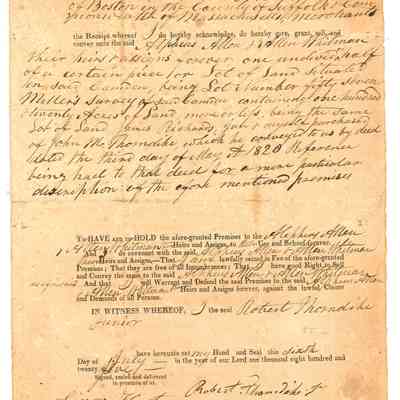 of Boston in the County of Suffolk & Com
monwealth of Massachusetts Merchants
the Receipt whereof I do hereby acknowledge, do hereby give, grant, sell, and
convey unto the said Alpheus Allen & Allen Whitman
their heirs & assigns forever one undivided half
of a certain piece or Lot of Land situate
in said Camden, being Lot Number fifty seven
Millers Survey of said Camden containing one hundred
twenty Acres of Land more or less, being the same
Lot of Land James Richards, Junr & myself purchased
of John M. Thorndike which he conveyed to us by deed
dated the third day of May A.D. 1820 Reference
being had to that deed for a more particular
description of the afore mentioned premises
To HAVE AND TO HOLD the afore-granted Premises to the said Alpheus Allen
& Allen Whitman Heirs and Assigns, to their Use and Behoof forever.
And I do covenant with the said Alpheus Allen & Allen Whitman
their Heirs and Assigns, That I am lawfully seized in Fee of the afore-granted
Premises; That they are free of all Incumbrances; That I have good Right to Sell
and Convey the same to the said Alpheus Allen & Allen Whitman
And that I will Warrant and Defend the said Premises to the said Alpheus Allen
& Allen Whitman Heirs and Assigns forever, against the lawful Claims
and Demands of all Persons.
IN WITNESS WHEREOF, I the said Robert Thorndike
Junior
have hereunto set my Hand and Seal this sixth
Day of July in the year of our Lord one thousand eight hundred and
twenty
Signed, sealed and delivered
in presence of us.
Robert Thorndike Jr